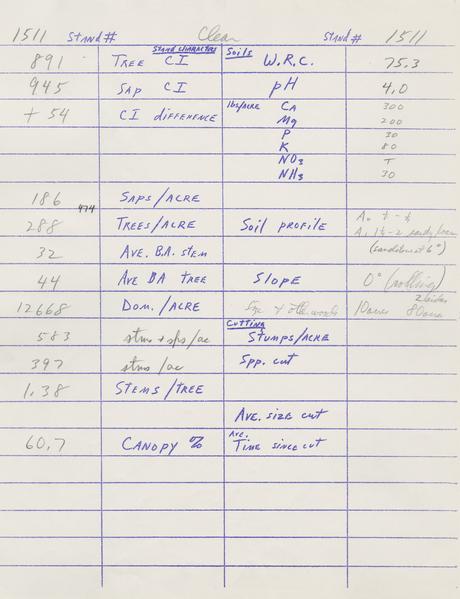 1511 Stand # Clear Stand # 1511
Stand Characters Soils
891 Tree CI W.R.C. 75.3
945 Sap CI pH 4.0
+ 54 CI difference lbs/acre Ca 300
Mg 200
P 30
K 80
NO3 T
NH3 30
186 Saps/acre
474
288 Trees/acre Soil profile A0 ½ - ½
A1 1½ - 2 sandy loam
(sandburst 6")
32 Ave. B.A. stem
44 Ave BA tree Slope 0° (rolling)
12668 Dom./acre Size & other woods 10 acres 80 acres
Cutting
583 stms + sps/ac Stumps/acre
397 stms/ac Spp. cut
1.38 Stems/tree
Ave. size cut
60.7 Canopy % Ave. Time since cut